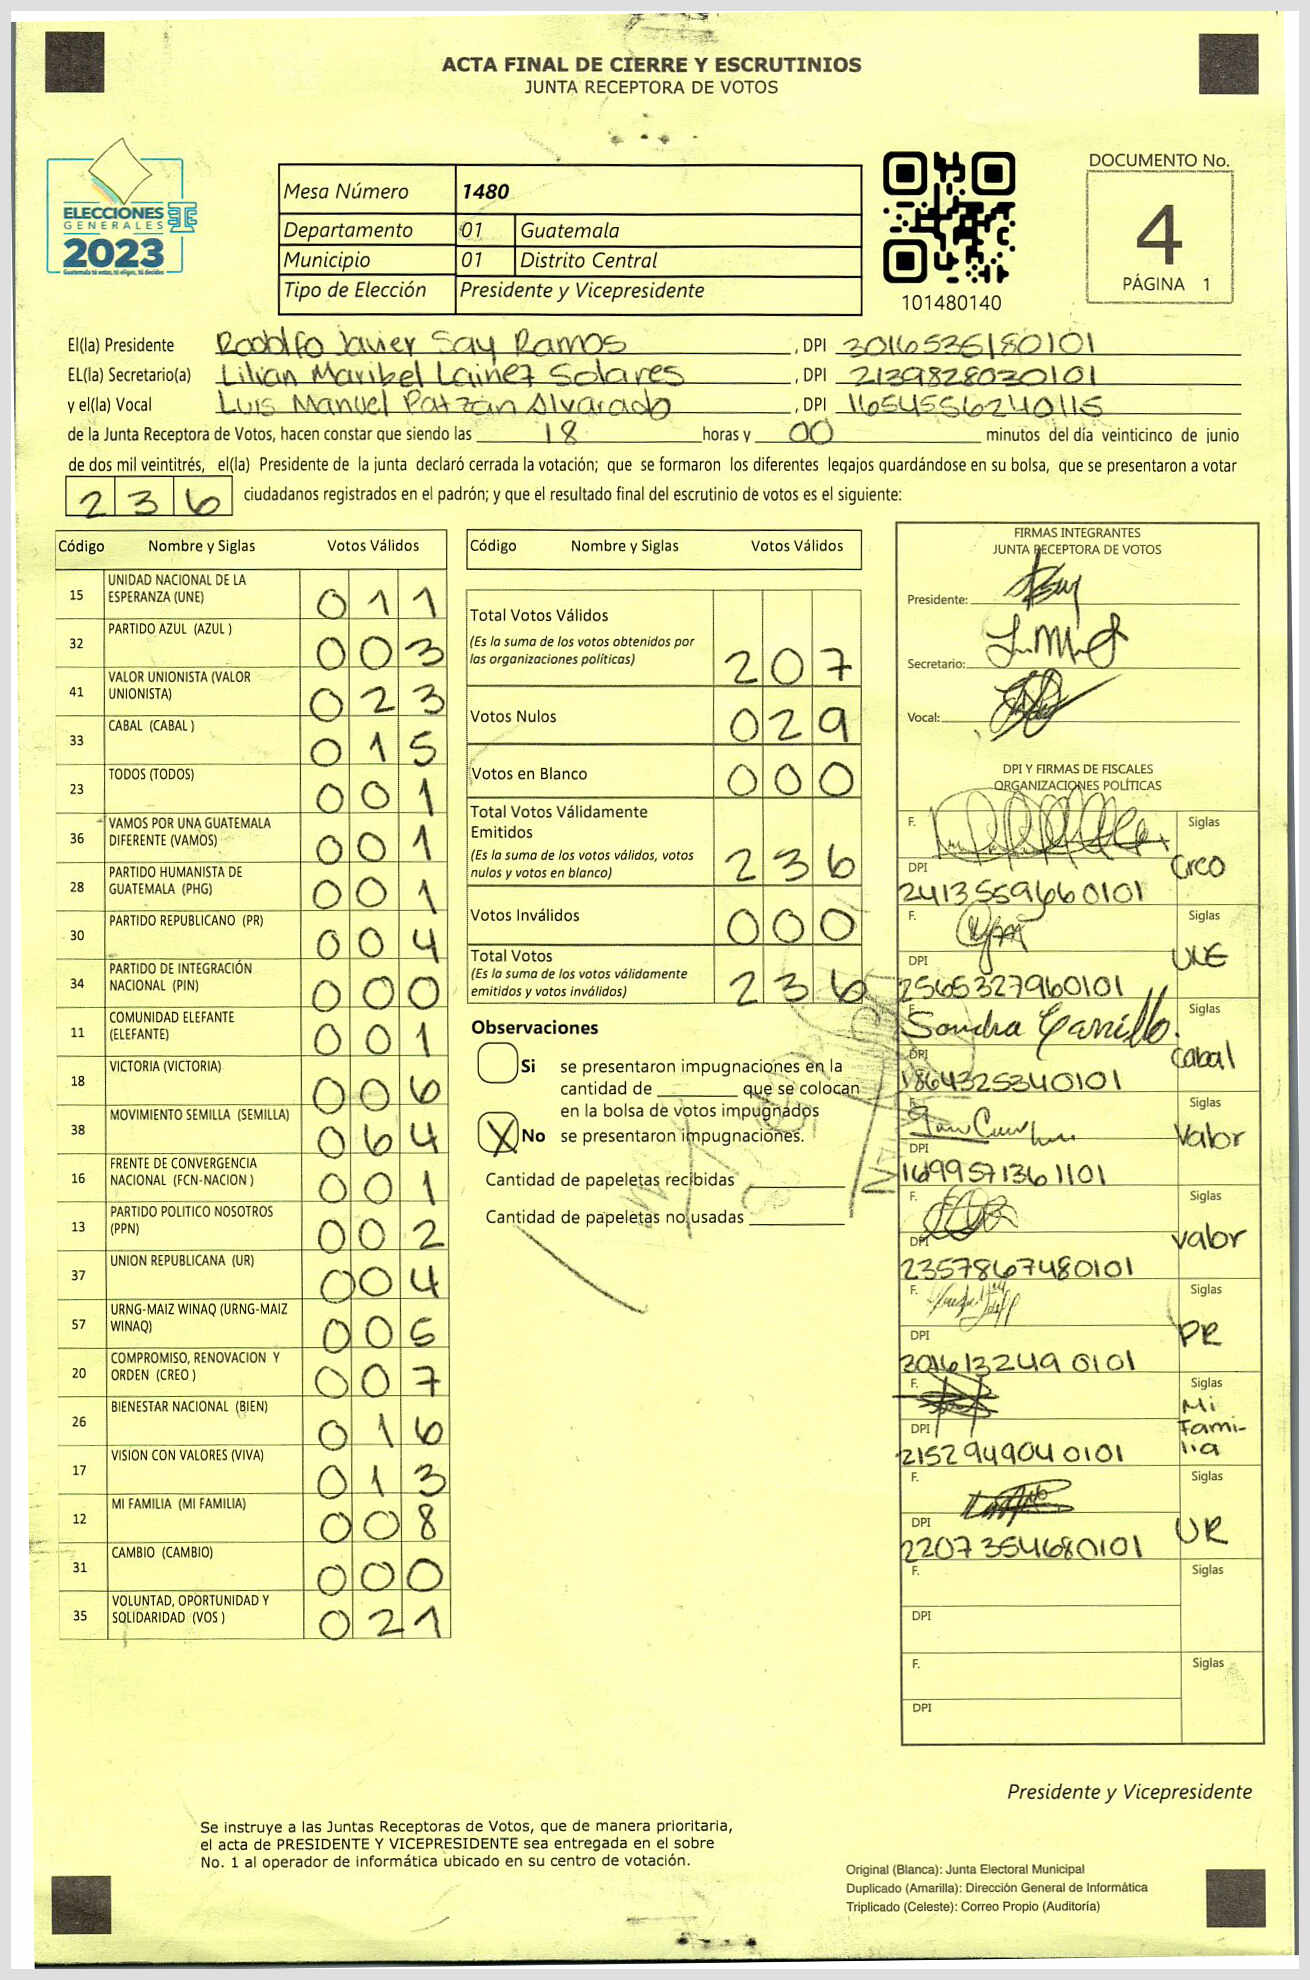 ACTA FINAL DE CIERRE Y ESCRUTINIOS
JUNTA RECEPTORA DE VOTOS
ELECCIONES
GENERALES
2023
Guatemala tú votas, tú eliges, tú decides
Mesa Número 1480
Departamento 01 Guatemala
Municipio 01 Distrito Central
Tipo de Elección Presidente y Vicepresidente
101480140
DOCUMENTO No.
4
PÁGINA 1
El(la) Presidente Rodolfo Javier Say Ramos , DPI 3016536180101
EL(la) Secretario(a) Lilian Maribel Lainez Solares , DPI 2139828030101
y el(la) Vocal Luis Manuel Patzán Alvarado , DPI 1654556240115
de la Junta Receptora de Votos, hacen constar que siendo las 18 horas y 00 minutos del día veinticinco de junio
de dos mil veintitrés, el(la) Presidente de la junta declaró cerrada la votación; que se formaron los diferentes legajos guardándose en su bolsa, que se presentaron a votar
236 ciudadanos registrados en el padrón; y que el resultado final del escrutinio de votos es el siguiente:
Código Nombre y Siglas Votos Válidos
15 UNIDAD NACIONAL DE LA ESPERANZA (UNE) 011
32 PARTIDO AZUL (AZUL ) 003
41 VALOR UNIONISTA (VALOR UNIONISTA) 023
33 CABAL (CABAL ) 015
23 TODOS (TODOS) 001
36 VAMOS POR UNA GUATEMALA DIFERENTE (VAMOS) 001
28 PARTIDO HUMANISTA DE GUATEMALA (PHG) 001
30 PARTIDO REPUBLICANO (PR) 004
34 PARTIDO DE INTEGRACIÓN NACIONAL (PIN) 000
11 COMUNIDAD ELEFANTE (ELEFANTE) 001
18 VICTORIA (VICTORIA) 006
38 MOVIMIENTO SEMILLA (SEMILLA) 064
16 FRENTE DE CONVERGENCIA NACIONAL (FCN-NACION ) 001
13 PARTIDO POLITICO NOSOTROS (PPN) 002
37 UNION REPUBLICANA (UR) 004
57 URNG-MAIZ WINAQ (URNG-MAIZ WINAQ) 005
20 COMPROMISO, RENOVACION Y ORDEN (CREO ) 007
26 BIENESTAR NACIONAL (BIEN) 016
17 VISION CON VALORES (VIVA) 013
12 MI FAMILIA (MI FAMILIA) 008
31 CAMBIO (CAMBIO) 000
35 VOLUNTAD, OPORTUNIDAD Y SOLIDARIDAD (VOS ) 021
Código Nombre y Siglas Votos Válidos
Total Votos Válidos
(Es la suma de los votos obtenidos por
las organizaciones políticas) 207
Votos Nulos 029
Votos en Blanco 000
Total Votos Válidamente
Emitidos
(Es la suma de los votos válidos, votos
nulos y votos en blanco) 236
Votos Inválidos 000
Total Votos
(Es la suma de los votos válidamente
emitidos y votos inválidos) 236
Observaciones
Si se presentaron impugnaciones en la
cantidad de ________ que se colocan
en la bolsa de votos impugnados
X No se presentaron impugnaciones.
Cantidad de papeletas recibidas
Cantidad de papeletas no usadas
FIRMAS INTEGRANTES
JUNTA RECEPTORA DE VOTOS
Presidente:
Secretario:
Vocal:
DPI Y FIRMAS DE FISCALES
ORGANIZACIONES POLÍTICAS
F. Siglas
Creo
DPI
2413559660101
F. Siglas
UNE
DPI
2565327960101
F. Sandra Carrillo. Siglas
Cabal
DPI
1864325340101
F. Siglas
Valor
DPI
1699571361101
F. Siglas
Valor
DPI
2357867480101
F. Siglas
PR
DPI
3016132490101
F. Siglas
Mi
Fami-
lia
DPI
2152949040101
F. Siglas
UR
DPI
2207354680101
F. Siglas
DPI
F. Siglas
DPI
Presidente y Vicepresidente
Se instruye a las Juntas Receptoras de Votos, que de manera prioritaria,
el acta de PRESIDENTE Y VICEPRESIDENTE sea entregada en el sobre
No. 1 al operador de informática ubicado en su centro de votación.
Original (Blanca): Junta Electoral Municipal
Duplicado (Amarilla): Dirección General de Informática
Triplicado (Celeste): Correo Propio (Auditoría)